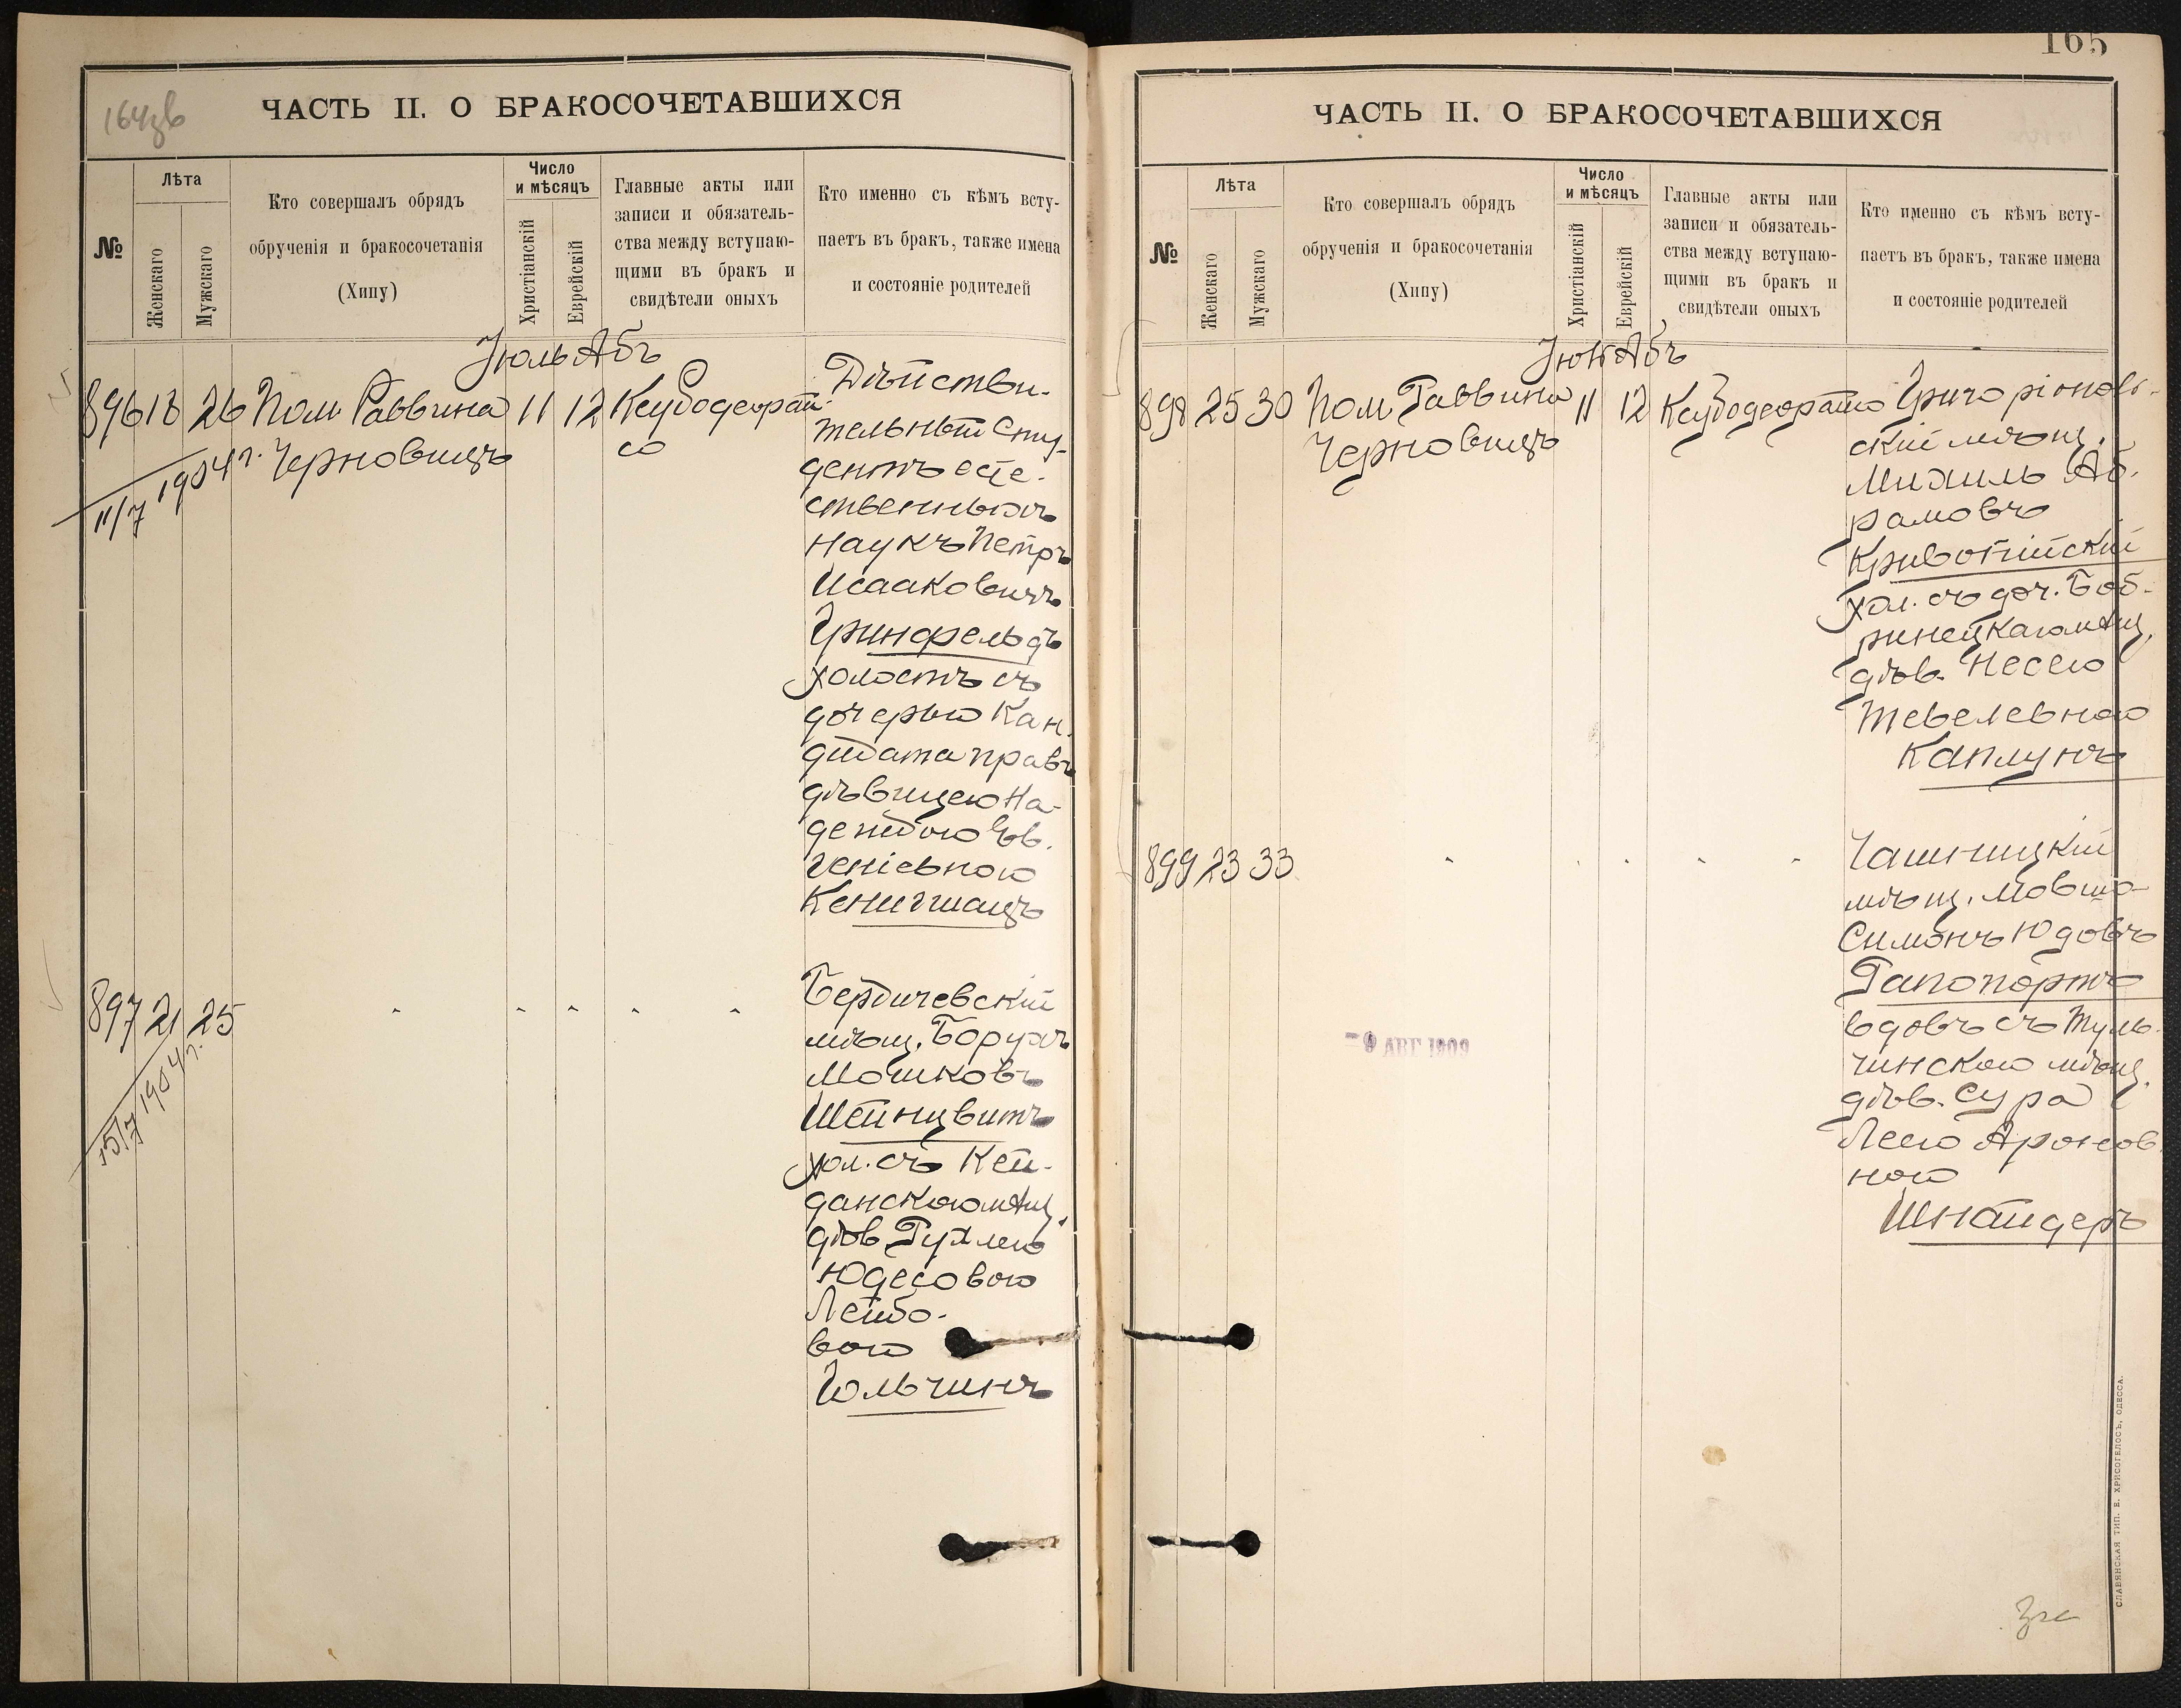 164зв
ЧАСТЬ II. О БРАКОСОЧЕТАВШИХСЯ
№
Лѣта
Женскаго
Мужскаго
Кто совершалъ обрядъ
обрученія и бракосочетанія
(Хипу)
Число
и мѣсяцъ
Христіанскій
Еврейскій
Главные акты или
записи и обязатель-
ства между вступаю-
щими въ бракъ и
свидѣтели оныхъ
Кто именно съ кѣмъ всту-
паетъ въ бракъ, также имена
и состояніе родителей
Іюль Абъ
896 18 26 Пом. Раввина 11 12
Черновицъ
11/7 1904 г.
Дѣйстви-
тельный Сту-
дентъ есте-
ственныхъ
наукъ Петръ
Исааковичъ
Гринфельдъ
холостъ съ
дочерью Кан-
дидата правъ
дѣвицею На-
деждою Ев-
геніевною
Кенигшацъ
897 21 25 " " " " "
15/7 1904 г.
Бердичевскій
мѣщ. Борухъ
Мошковъ
Шейнцвитъ
хол. съ Кей-
данскою мѣщ.
дѣв. Рухлею
Юдесовою
Лейбо-
вою
Гольчинъ
165
ЧАСТЬ II. О БРАКОСОЧЕТАВШИХСЯ
№
Лѣта
Женскаго
Мужскаго
Кто совершалъ обрядъ
обрученія и бракосочетанія
(Хипу)
Число
и мѣсяцъ
Христіанскій
Еврейскій
Главные акты или
записи и обязатель-
ства между вступаю-
щими въ бракъ и
свидѣтели оныхъ
Кто именно съ кѣмъ всту-
паетъ въ бракъ, также имена
и состояніе родителей
Абъ
898 25 30 Пом Раввина 11 12
Черновицъ
Григоріополь-
скій мѣщ.
Михиль Аб-
рамовъ
хол. съ доч. Боб-
ринецкаго мѣщ.
дѣв. Несею
Тевелевною
Каплунъ
899 23 33 " " " " "
Чашницкій
мѣщ. Мовша-
Симонъ Юдовъ
Рапопортъ
вдовъ съ Туль-
чинскою мѣщ.
дѣв. Сура
Леею Аронов-
ною
Шнайдеръ
- 9 АВГ 1909
СЛАВЯНСКАЯ ТИП. Е. ХРИСОГЕЛОСЪ, ОДЕССА.